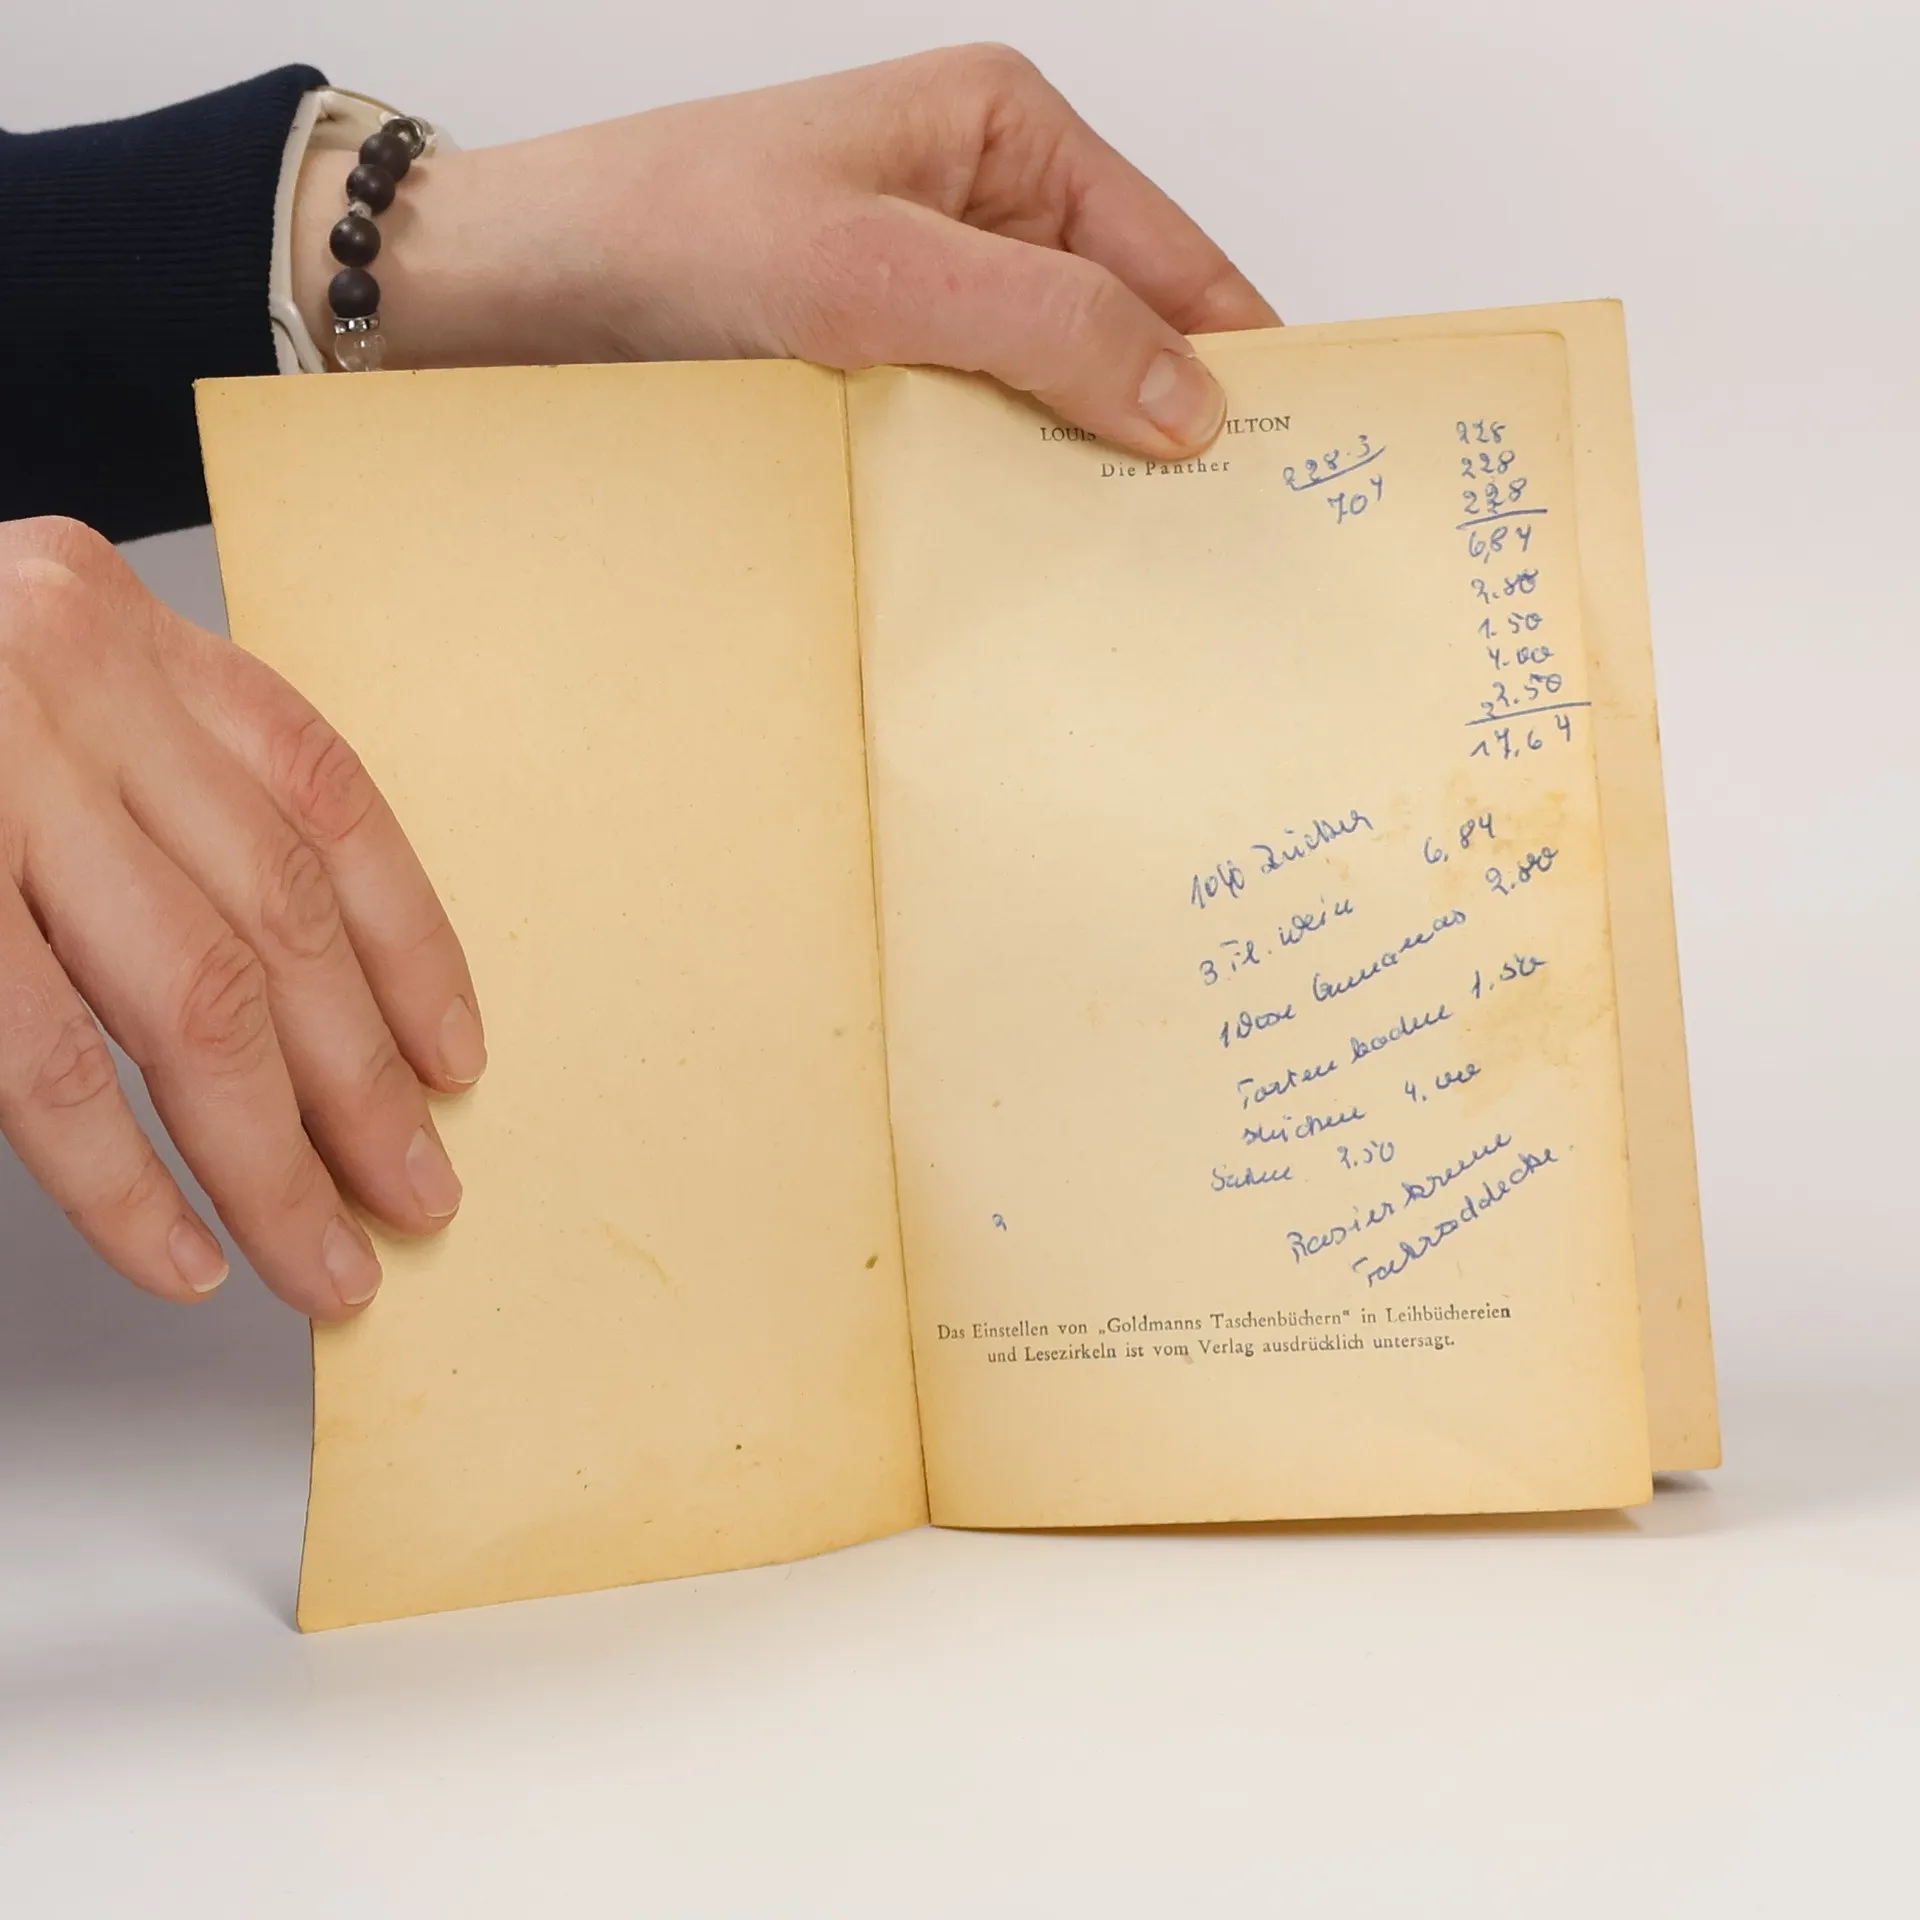 LOUIS ILTON
Die Panther
228.3
704
228
228
228
6,84
2.80
1.50
4.00
2.50
17,64
Zucker 6,84
3 Fl. Wein 2.80
1 Dose Annanas
Tortenboden 1.50
4.00
Sahne 2.50
Rasierkreme
Fahrraddecke.
2
Das Einstellen von „Goldmanns Taschenbüchern“ in Leihbüchereien
und Lesezirkeln ist vom Verlag ausdrücklich untersagt.